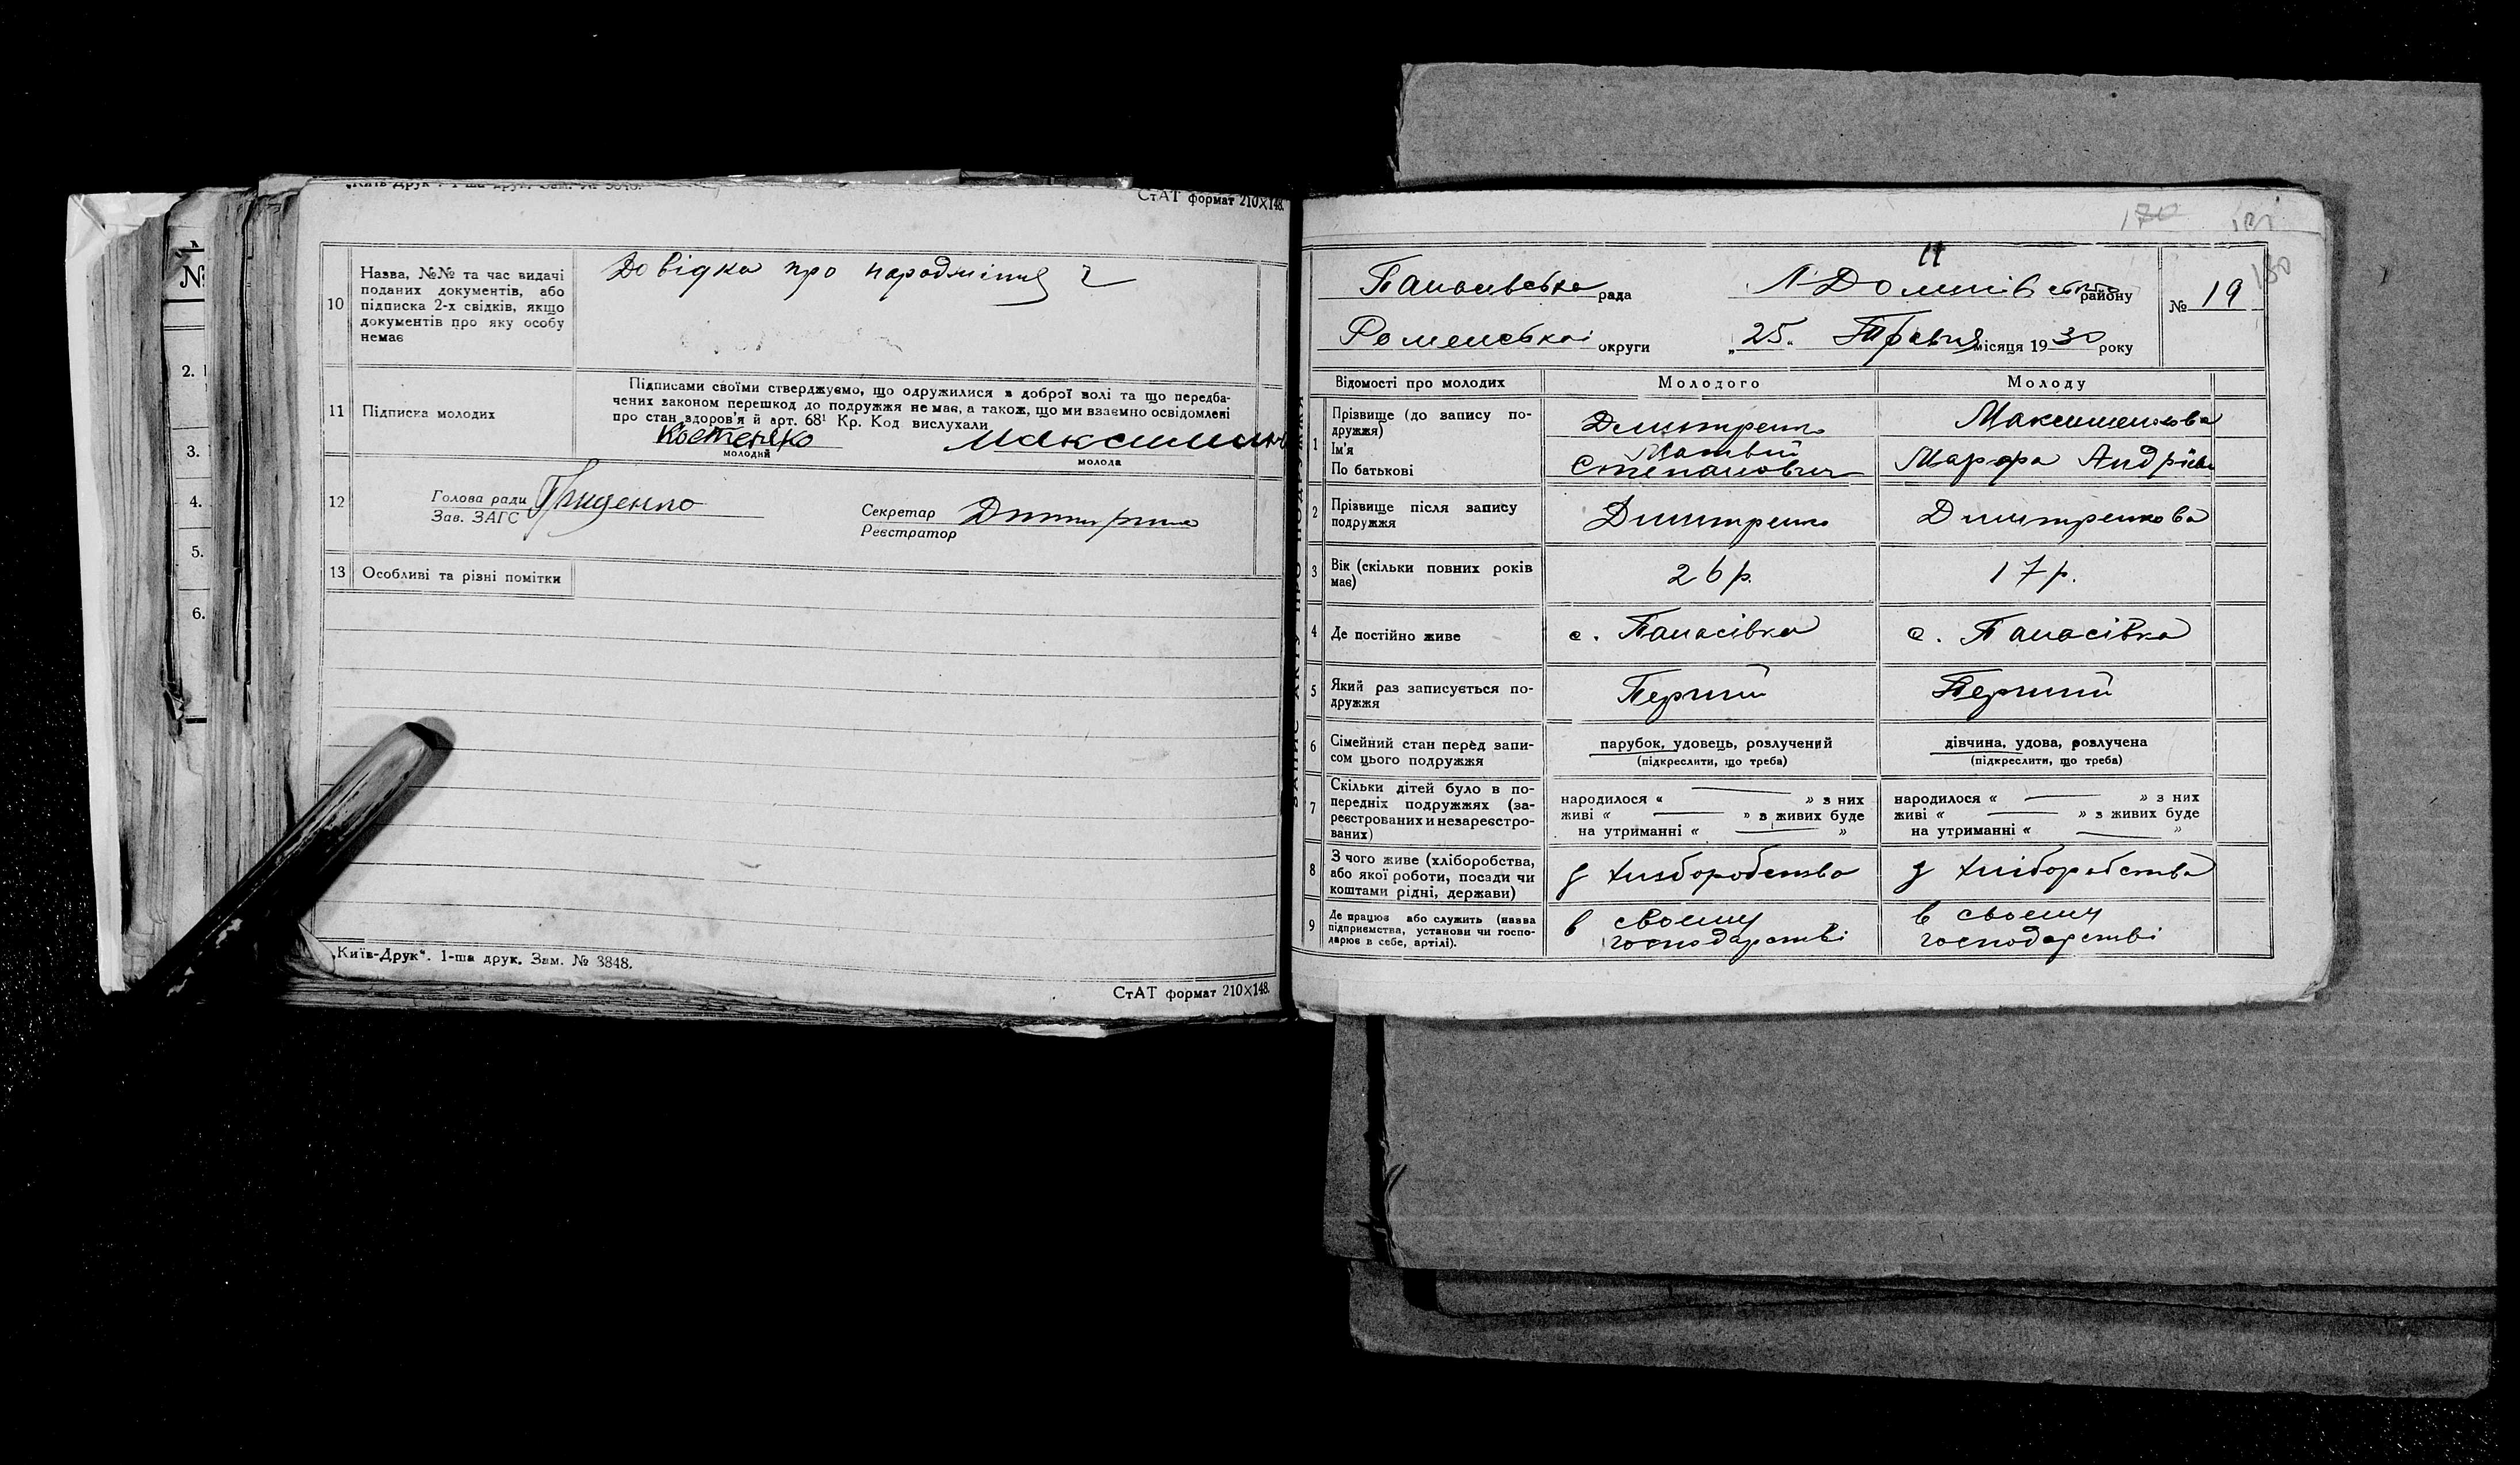 СтАТ формат 210×148.
10
Назва, №№ та час видачі
поданих документів, або
підписка 2-х свідків, якщо
документів про яку особу
немає
Довідка про народження 2
11
Підписка молодих
Підписами своїми стверджуємо, що одружилися в доброї волі та що передба-
чених законом перешкод до подружжя не має, а також, що ми взаємно освідомлені
про стан здоров'я й арт. 68¹ Кр. Код вислухали
Костенко
молодий
молода
12
Голова ради Гриценко
Зав. ЗАГС
Секретар
Реєстратор
13
Особливі та різні помітки
„Київ-Друк“. 1-ша друк. Зам. № 3848.
СтАТ формат 210×148.
№
2.
3.
4.
5.
6.
170
180
Панасівська рада
району
№ 19
Роменської округи
„25. Травня місяця 1930 року
Відомості про молодих
Молодого
Молоду
1
Прізвище (до запису по-
дружжя)
Ім'я
По батькові
Дмитренко
Матвій
Степанович
Максименкова
Марфа Андріївна
2
Прізвище після запису
подружжя
Дмитренко
Дмитренкова
3
Вік (скільки повних років
має)
26 р.
17 р.
4
Де постійно живе
с. Панасівка
с. Панасівка
5
Який раз записується по-
дружжя
Перший
Перший
6
Сімейний стан перед запи-
сом цього подружжя
парубок, удовець, розлучений
(підкреслити, що треба)
дівчина, удова, розлучена
(підкреслити, що треба)
7
Скільки дітей було в по-
передніх подружжях (за-
реєстрованих и незареєстро-
ваних)
народилося « — » з них
живі « — » з живих буде
на утриманні « — »
народилося « — » з них
живі « — » з живих буде
на утриманні « — »
8
З чого живе (хліборобства,
або якої роботи, посади чи
коштами рідні, держави)
з хліборобства
з хліборобства
9
Де працює або служить (назва
підприємства, установи чи госпо-
дарює в себе, артілі).
в своєму
господарстві
в своєму
господарстві